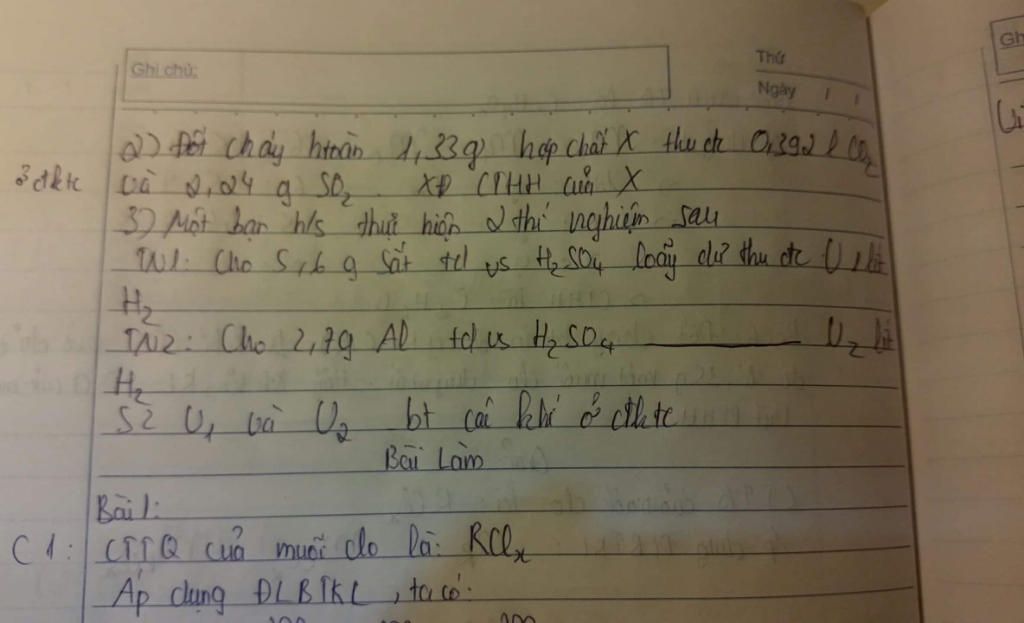 Ghi chú:
Thứ
Ngày
2) Đốt cháy htoàn 1,33g hợp chất X thu đc 0,392 l CO2
ở đktc và 2,24 g SO2. XĐ CTHH của X
3) Một bạn h/s thực hiện 2 thí nghiệm sau
TN1: Cho 5,6 g sắt td vs H2SO4 loãng dư thu đc V1 lít
H2
TN2: Cho 2,7g Al td vs H2SO4 ——— V2 lít
H2
S2 V1 và V2 bt các khí ở đktc
Bài Làm
Bài 1:
C1: CTTQ của muối clo là: RClx
Áp dụng ĐLBTKL, ta có:
Gh